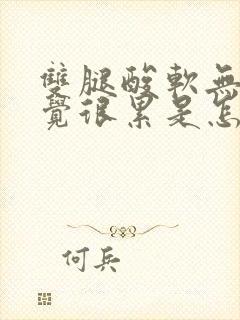 雙腿酸軟無
覺很累是怎
何兵